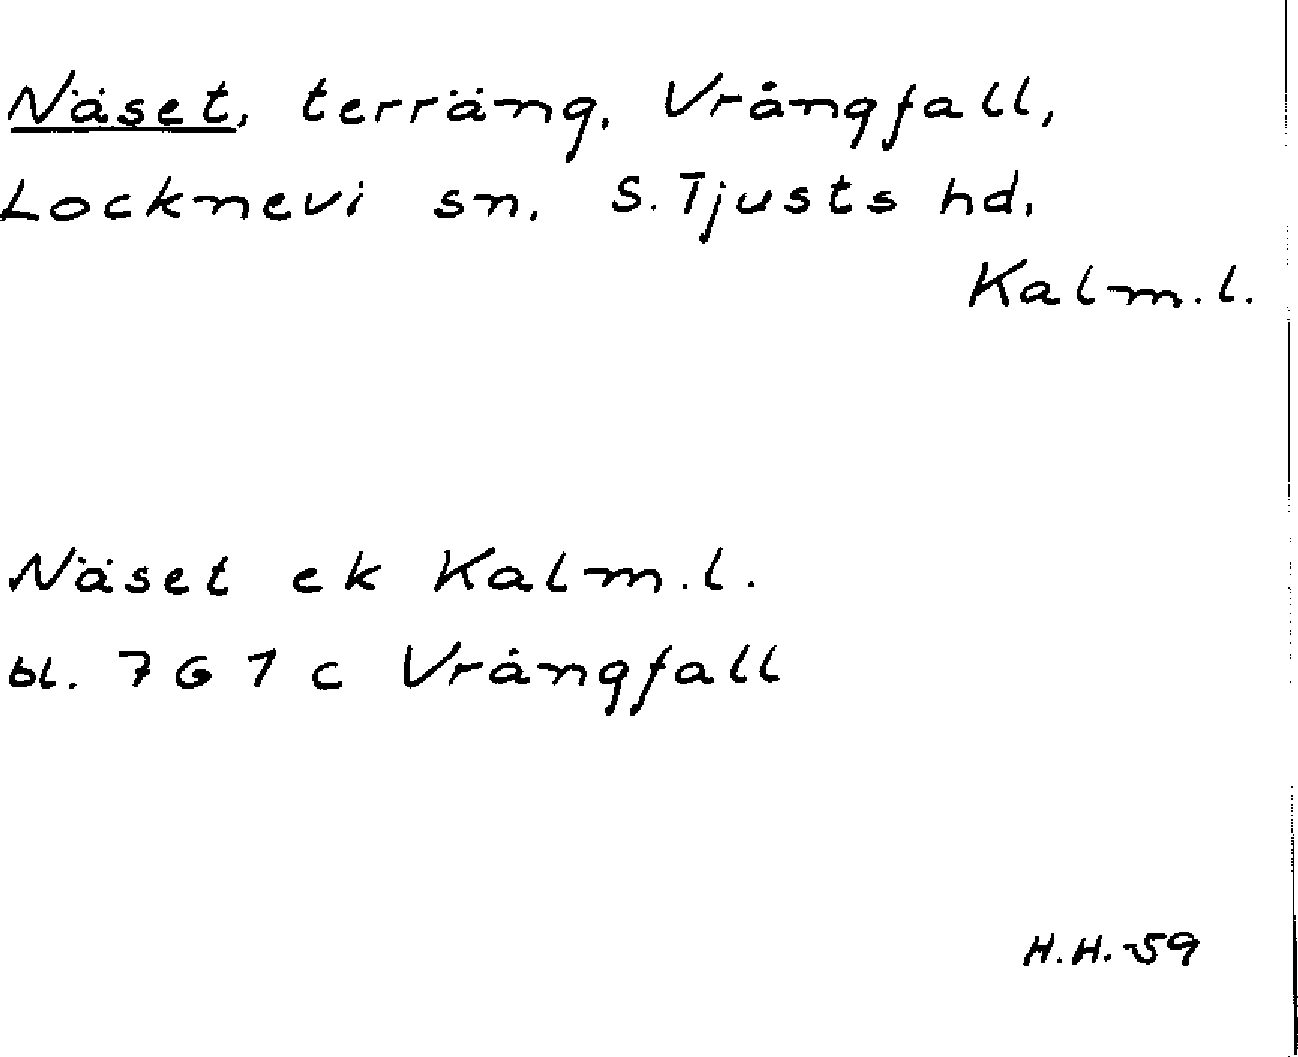 Näset, terräng, Vrångfall,
Locknevi sn, S. Tjusts hd,
Kalm.l.
Näset ek Kalm.l.
bl. 7 G 1 c Vrångfall
H.H.-59